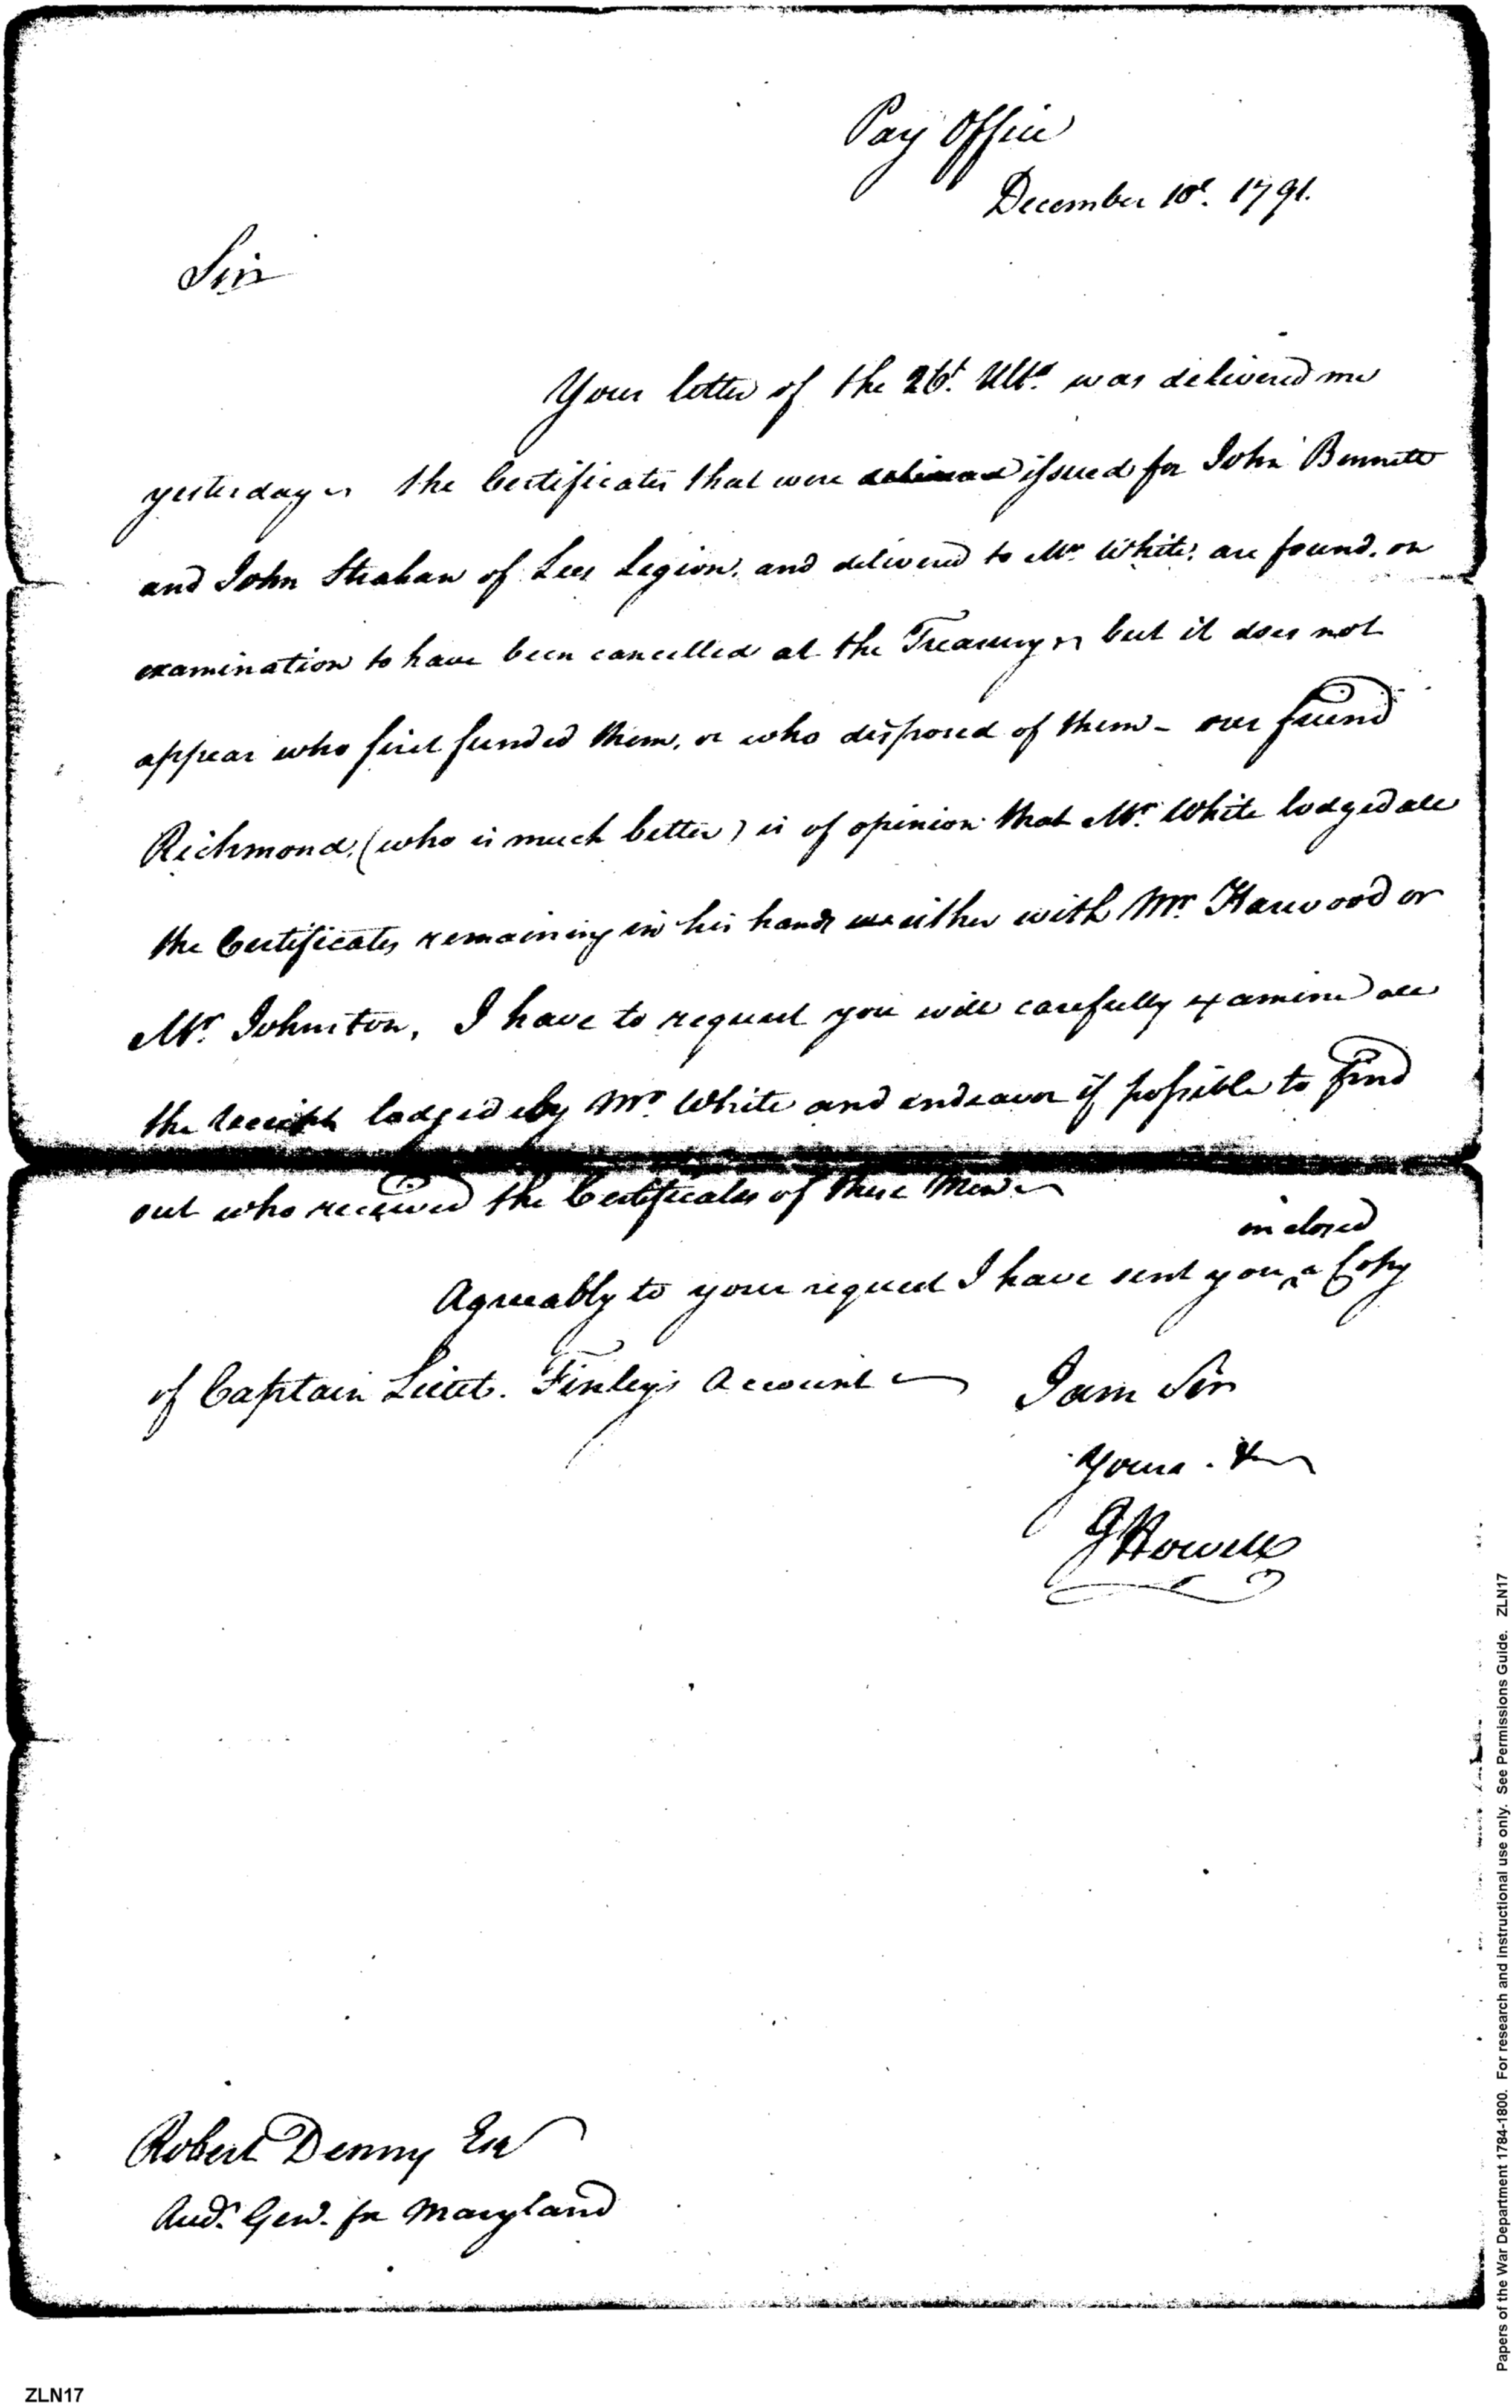 Pay Office
December 10t. 1791.
Sir
Your letter of the 26t. Ulto. was delivered me
yesterday ~ the Certificates that were issued for John Bennett
and John Strahan of Lees Legion, and delivered to Mr. White, are found, on
examination to have been cancelled at the Treasury ~ but it does not
appear who first funded them, or who disposed of them - our friend
Richmond, (who is much better) is of opinion that Mr. White lodged all
the Certificates remaining in his hands either with Mr. Harwood or
Mr. Johnston, I have to request you will carefully examine all
the receipts lodged by Mr. White and endeavor if possible to find
out who received the Certificates of these Men ~
inclosed
Agreeably to your request I have sent you ^ a Copy
of Captain Lieut. Finley's Account ~ I am Sir
Yours . &
J Howell
Robert Denny Esq
Aud. Genl. for Maryland
Papers of the War Department 1784-1800. For research and instructional use only. See Permissions Guide. ZLN17
ZLN17